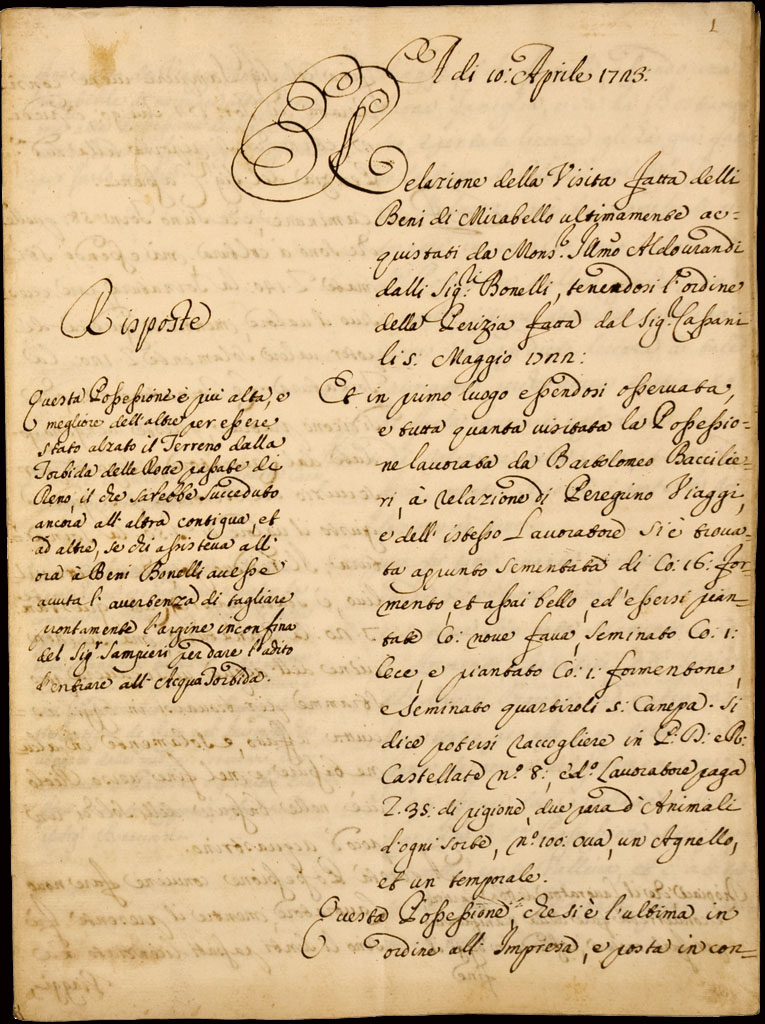 1
A di 10: Aprile 1723:
Relazione della Visita fatta delli
Beni di Mirabello ultimamente ac=
quistati da Mons.r Illmo Aldourandi
dalli Sig.ri Bonelli, tenendosi l'ordine
della Perizia fatta dal Sig.r Cassani
li 5: Maggio 1722:
Et in primo luogo essendosi osservata,
e tutta quanta visitata la Possessio=
ne lavorata da Bartolomeo Baccilie=
ri, à relazione di Peregrino Viaggi,
e dell'istesso Lavoratore si è trova=
ta apunto sementata di Co: 16: for=
mento, et assai bello, ed'essersi pian=
tate Co: nove fava, seminato Co: 1:
Cece, e piantato Co: 1: formentone,
e seminato quartiroli 5: Canepa. Si
dice potersi raccogliere in P: P: e R:
Castellate n.o 8:, ed.o Lavoratore paga
L. 35: di pigione, due para d'Animali
d'ogni sorte, n.o 100: ova, un Agnello,
et un temporale.
Questa Possessione, che si è l'ultima in
ordine all'Impresa, e posta in con=
Risposte
Questa Possessione è più alta, e
megliore dell'altre per essere
stato alzato il Terreno dalla
Torbida delle Rotte passate di
Reno, il che sarebbe succeduto
ancora all'altra contigua, et
ad altre, se chi assisteva all'
ora à Beni Bonelli avesse
avuta l'avertenza di tagliare
prontamente l'argine inconfina
del Sig.r Sampieri per dare l'adito
d'entrare all'Acqua Torbida.